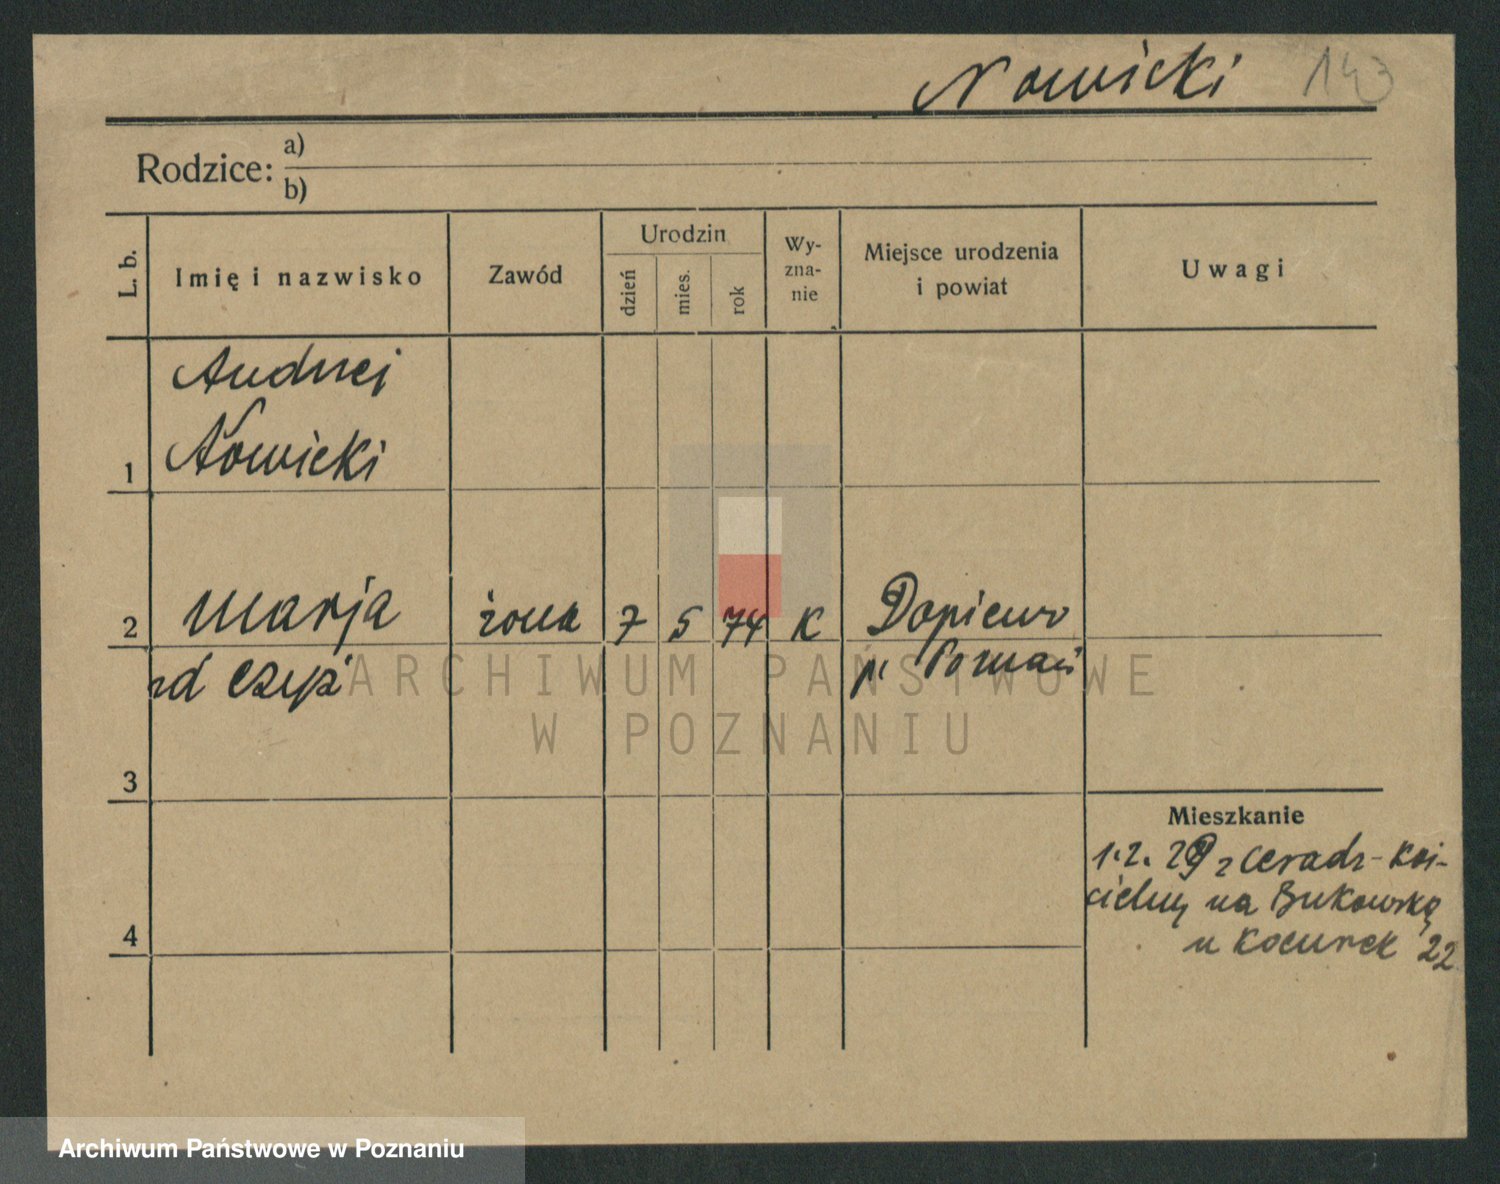 Nowicki 143
Rodzice: a)
b)
L. b.
Imię i nazwisko
Zawód
Urodzin
dzień
mies.
rok
Wy-
zna-
nie
Miejsce urodzenia
i powiat
Uwagi
Andrzej
Nowicki
1
2 Marja żona 7 5 74 K Dopiewo
p. Poznań
ARCHIWUM PAŃSTWOWE
W POZNANIU
3
Mieszkanie
1.2. z Ceradz-Koś-
cielny na Bukowską
u Kocurek 22
4
Archiwum Państwowe w Poznaniu